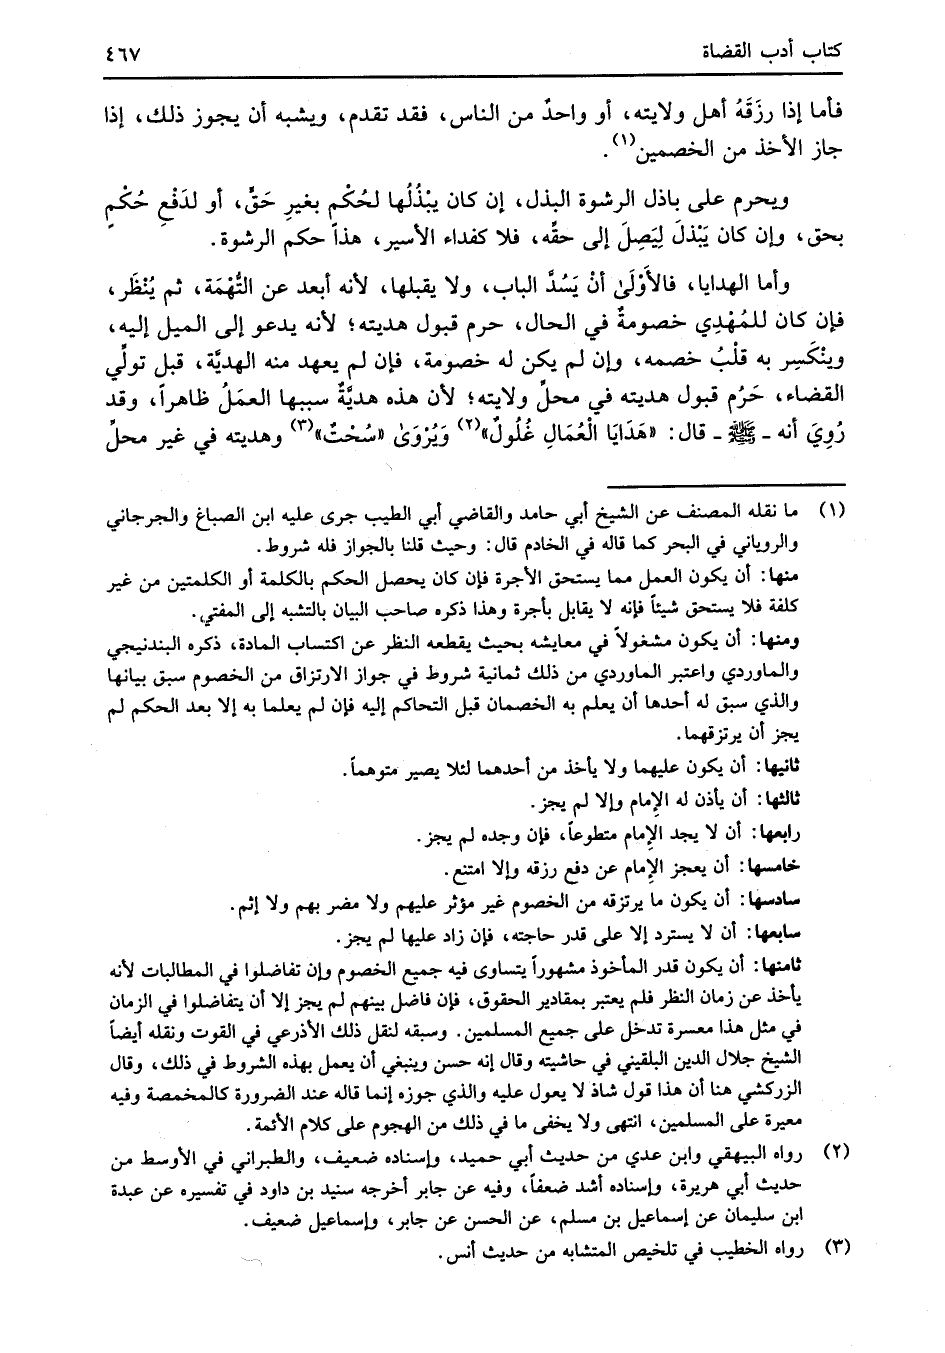 كتاب أدب القضاة
٤٦٧
فأما إذا رزَقَهُ أهل ولايته، أو واحدٌ من الناس، فقد تقدم، ويشبه أن يجوز ذلك، إذا
جاز الأخذ من الخصمين(١).
ويحرم على باذل الرشوة البذل، إن كان يبْذُلُها لحُكْم بغيرِ حَقٍّ، أو لدَفْعِ حُكْمٍ
بحق، وإن كان يَبْذلَ لِيَصِلَ إلى حقِّه، فلا كفداء الأسير، هذاً حكم الرشوة.
وأما الهدايا، فالأَوْلَىٰ أنْ يَسُدَّ الباب، ولا يقبلها، لأنه أبعد عن التُّهْمَة، ثم يُنْظَر،
فإن كان للمُهْدِي خصومةٌ في الحال، حرم قبول هديته؛ لأنه يدعو إلى الميل إليه،
وينْكَسِر به قلْبُ خصمه، وإن لم يكن له خصومة، فإن لم يعهد منه الهديَّة، قبل تولِّي
القضاء، حَرُم قبول هديته في محلِّ ولايته؛ لأن هذه هديَّةٌ سببها العمَلُ ظاهراً، وقد
رُوِيَ أنه ـ ﷺ ـ قال: «هَدَايَا الْعُمَالِ غُلُولٌ»(٢) وَيُرْوَىٰ «سُحْتٌ»(٣) وهديته في غير محلِّ
(١) ما نقله المصنف عن الشيخ أبي حامد والقاضي أبي الطيب جرى عليه ابن الصباغ والجرجاني
والروياني في البحر كما قاله في الخادم قال: وحيث قلنا بالجواز فله شروط.
منها: أن يكون العمل مما يستحق الأجرة فإن كان يحصل الحكم بالكلمة أو الكلمتين من غير
كلفة فلا يستحق شيئاً فإنه لا يقابل بأجرة وهذا ذكره صاحب البيان بالتشبه إلى المفتي.
ومنها: أن يكون مشغولاً في معايشه بحيث يقطعه النظر عن اكتساب المادة، ذكره البندنيجي
والماوردي واعتبر الماوردي من ذلك ثمانية شروط في جواز الارتزاق من الخصوم سبق بيانها
والذي سبق له أحدها أن يعلم به الخصمان قبل التحاكم إليه فإن لم يعلما به إلا بعد الحكم لم
يجز أن يرتزقهما.
ثانيها: أن يكون عليهما ولا يأخذ من أحدهما لئلا يصير متوهماً.
ثالثها: أن يأذن له الإمام وإلا لم يجز.
رابعها: أن لا يجد الإمام متطوعاً، فإن وجده لم يجز.
خامسها: أن يعجز الإمام عن دفع رزقه وإلا امتنع.
سادسها: أن يكون ما يرتزقه من الخصوم غير مؤثر عليهم ولا مضر بهم ولا إثم.
سابعها: أن لا يسترد إلا على قدر حاجته، فإن زاد عليها لم يجز.
ثامنها: أن يكون قدر المأخوذ مشهوراً يتساوى فيه جميع الخصوم وإن تفاضلوا في المطالبات لأنه
يأخذ عن زمان النظر فلم يعتبر بمقادير الحقوق، فإن فاضل بينهم لم يجز إلا أن يتفاضلوا في الزمان
في مثل هذا معسرة تدخل على جميع المسلمين. وسبقه لنقل ذلك الأذرعي في القوت ونقله أيضاً
الشيخ جلال الدين البلقيني في حاشيته وقال إنه حسن وينبغي أن يعمل بهذه الشروط في ذلك، وقال
الزركشي هنا أن هذا قول شاذ لا يعول عليه والذي جوزه إنما قاله عند الضرورة كالمخمصة وفيه
معيرة على المسلمين، انتهى ولا يخفى ما في ذلك من الهجوم على كلام الأئمة.
(٢) رواه البيهقي وابن عدي من حديث أبي حميد، وإسناده ضعيف، والطبراني في الأوسط من
حديث أبي هريرة، وإسناده أشد ضعفاً، وفيه عن جابر أخرجه سنيد بن داود في تفسيره عن عبدة
ابن سليمان عن إسماعيل بن مسلم، عن الحسن عن جابر، وإسماعيل ضعيف.
(٣) رواه الخطيب في تلخيص المتشابه من حديث أنس.